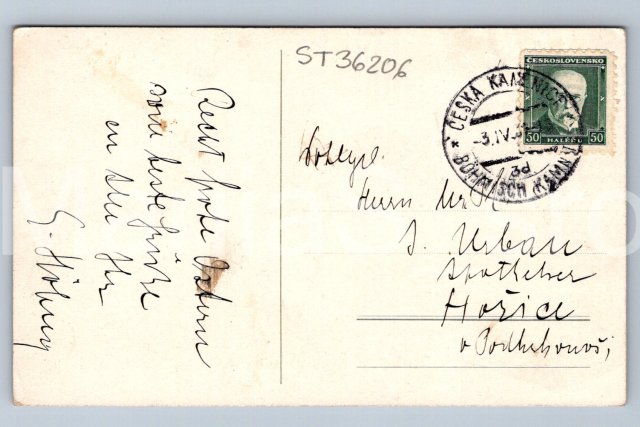 ST36206
Recht frohe Ostern
sowie beste Grüße
an alle
G.
ČESKOSLOVENSKO
50 HALÉŘŮ 50
* ČESKÁ KAMENICE
-3.IV.
3d
BÖHMISCH KAMNITZ
Herrn Mr
J. Urban
Apotheker
Hořice
v Podkrkonoší